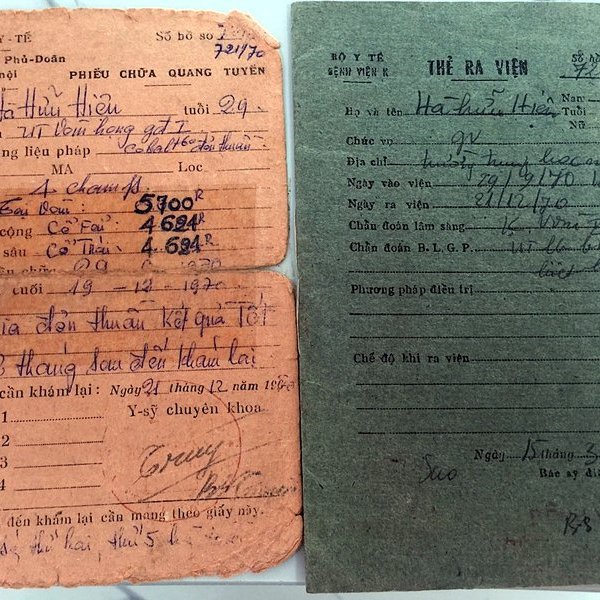 Y - TẾ
Số hồ sơ
721/70
Phủ-Doãn
nội
PHIẾU CHỮA QUANG TUYẾN
Hà Hữu Hiên tuổi 29
UT Vòm họng gđ I
ng liệu pháp Cobalt 60 đơn thuần
MA Loc
4 champs
Vòm: 5700R
cộng Cổ Fải: 4.624R
sâu Cổ Trái: 4.624R
29
cuối 19 - 12 - 1970
đơn thuần kết quả Tốt
3 tháng sau đến khám lại
cần khám lại: Ngày 21 tháng 12 năm 19
1
Y-sỹ chuyên khoa
2
3
4
đến khám lại cần mang theo giấy này.
thứ hai, thứ 5
BỘ Y TẾ
BỆNH VIỆN K
THẺ RA VIỆN
Số
72
Họ và tên Hà Hữu Hiên
Nam
Tuổi
Nữ
Chức vụ GV
Địa chỉ trường trung học
Ngày vào viện 29/9/70
Ngày ra viện 21/12/70
Chẩn đoán lâm sàng K Vòm
Chẩn đoán B.L.G.P. UT
Phương pháp điều trị
Chế độ khi ra viện
Ngày 15 tháng 3
Sao
Bác sỹ
BS